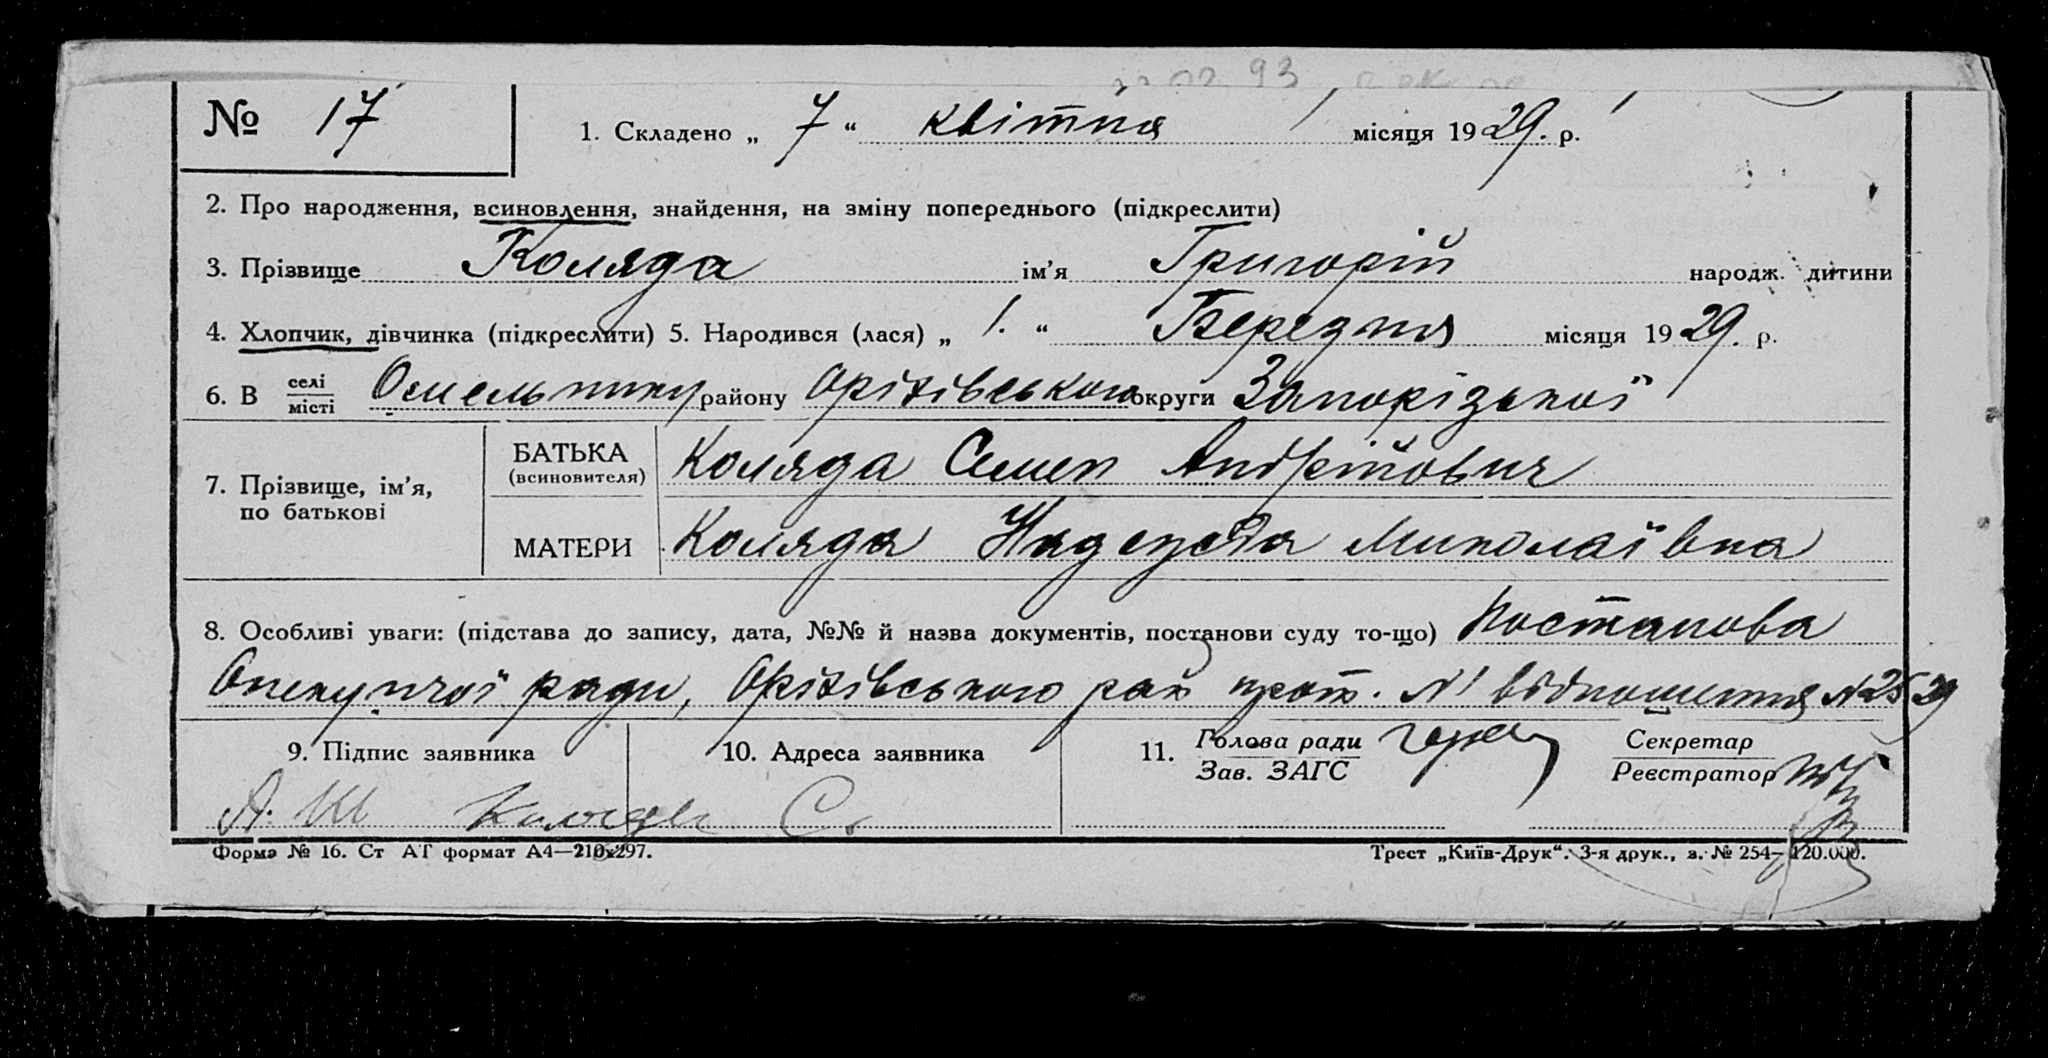 № 17
1. Складено „ 7 “ квітня місяця 1929. р.
2. Про народження, всиновлення, знайдення, на зміну попереднього (підкреслити)
3. Прізвище Коляда ім'я Григорій народж. дитини
4. Хлопчик, дівчинка (підкреслити) 5. Народився (лася) „ 1. “ Березня місяця 1929. р.
6. В селі місті Омельнику району Оріхівського округи Запорізької
7. Прізвище, ім'я, по батькові
БАТЬКА (всиновителя) Коляда Семен Андрійович
МАТЕРИ Коляда Надежда Миколаївна
8. Особливі уваги: (підстава до запису, дата, №№ й назва документів, постанови суду то-що) Постанова
Опекунчої ради, Оріхівського рай прот. №1 відношення №25 29
9. Підпис заявника 10. Адреса заявника 11. Голова ради Зав. ЗАГС Секретар Реєстратор
Форма № 16. Ст АТ формат А4—210х297. Трест „Київ-Друк“. 3-я друк., з. № 254—120.000.